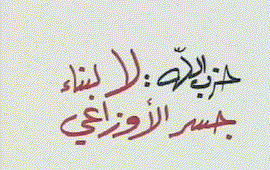 حزب الله : لا لبناء
جسر الأوزاعي